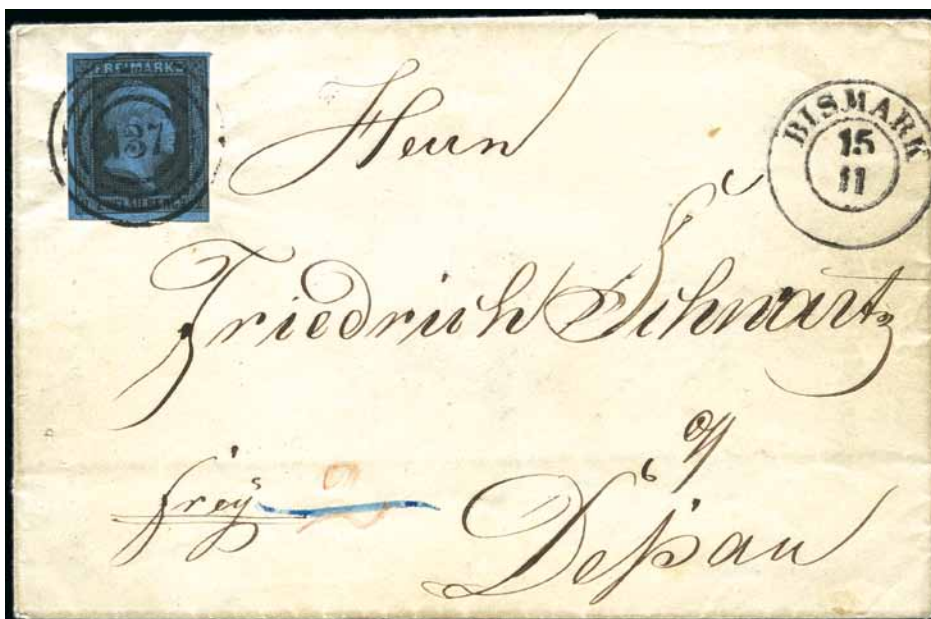 FREIMARKE
137
ZWEI SILBERGR.
BISMARK
15
11
Herrn
Friedrich Schwartz
frey
Deßau